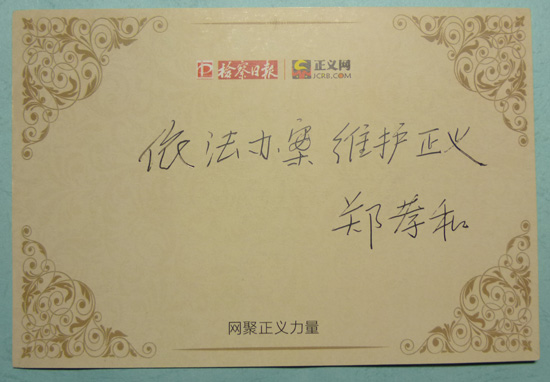 检察日报 正义网
JCRB.COM
依法办案 维护正义
郑孝和
网聚正义力量